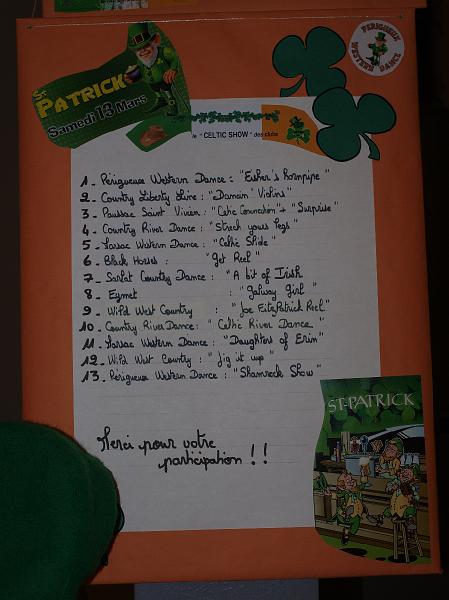 St
PATRICK
Samedi 13 Mars
PÉRIGUEUX
WESTERN DANCE
le "CELTIC SHOW" des clubs
1_ Périgueux Western Dance : "Fisher's Hornpipe"
2_ Country Liberty Line : "Dancin' Violins"
3_ Paussac Saint Vivien : "Celtic Connection" + "Surprise"
4_ Country River Dance : "Strech yours legs"
5_ Sarsac Western Dance : "Celtic Slide"
6_ Black Horses : "Get Reel"
7_ Sarlat Country Dance : "A bit of Irish
8_ Eymet : "Galway Girl"
9_ Wild West Country : "Joe FitzPatrick Reel"
10_ Country River Dance : "Celtic River Dance"
11_ Sarsac Western Dance : "Daughters of Erin"
12_ Wild West Country : "Jig it up"
13_ Périgueux Western Dance : "Shamrock Show"
Merci pour votre
participation !!
ST-PATRICK